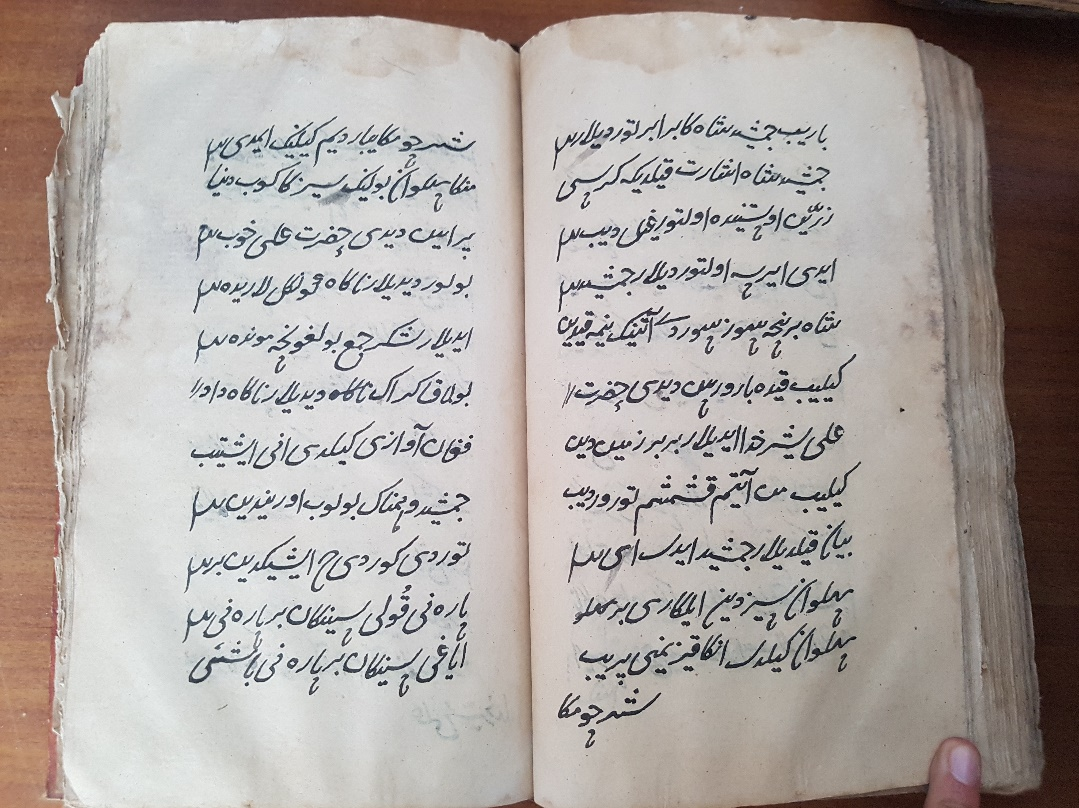 باریب جمشید شاه کا برابر توردیلار
جمشید شاه اشارت قیلدیکه کرسی
زرّین اوستنده اولتورغیل دیب
ایدی ایرسه اولتوردیلار جمشید
شاه برنچه سوز سوردی آتینک نیمه قیدین
کیلیب قیده بارورسن دیدی حضرت
علی شیر خدا ایدیلار بربر زمیندین
کیلیب من آتیم قشمشم تورور دیب
بیان قیلدیلار جمشید ایدی ای
پهلوان سیزدین ایلکاری بر پهلو
پهلوان کیلدی انکا قیزیمنی بیریب
شهر جو مکا
شهر جو مکا یباردیم کیلینک ایمدی
منکا پهلوان بولینک سیز کا کوب دنیا
بیرایین دیدی حضرت علی خوب
بولور دیدیلار ناکاه مونکل لاریده
ایدیلار لشکر جمع بولغونچه مونده
بولماق کراک ناکاه دیدیلار ناکاه داد
فغان آوازی کیلدی انی ایشیتیب
جمشید وهمناک بولوب اورنیدین
توردی کوردی ایشیکدین بر
پاره نی قولی سینکان بر پاره نی
ایاغی سینکان بر پاره نی باشی